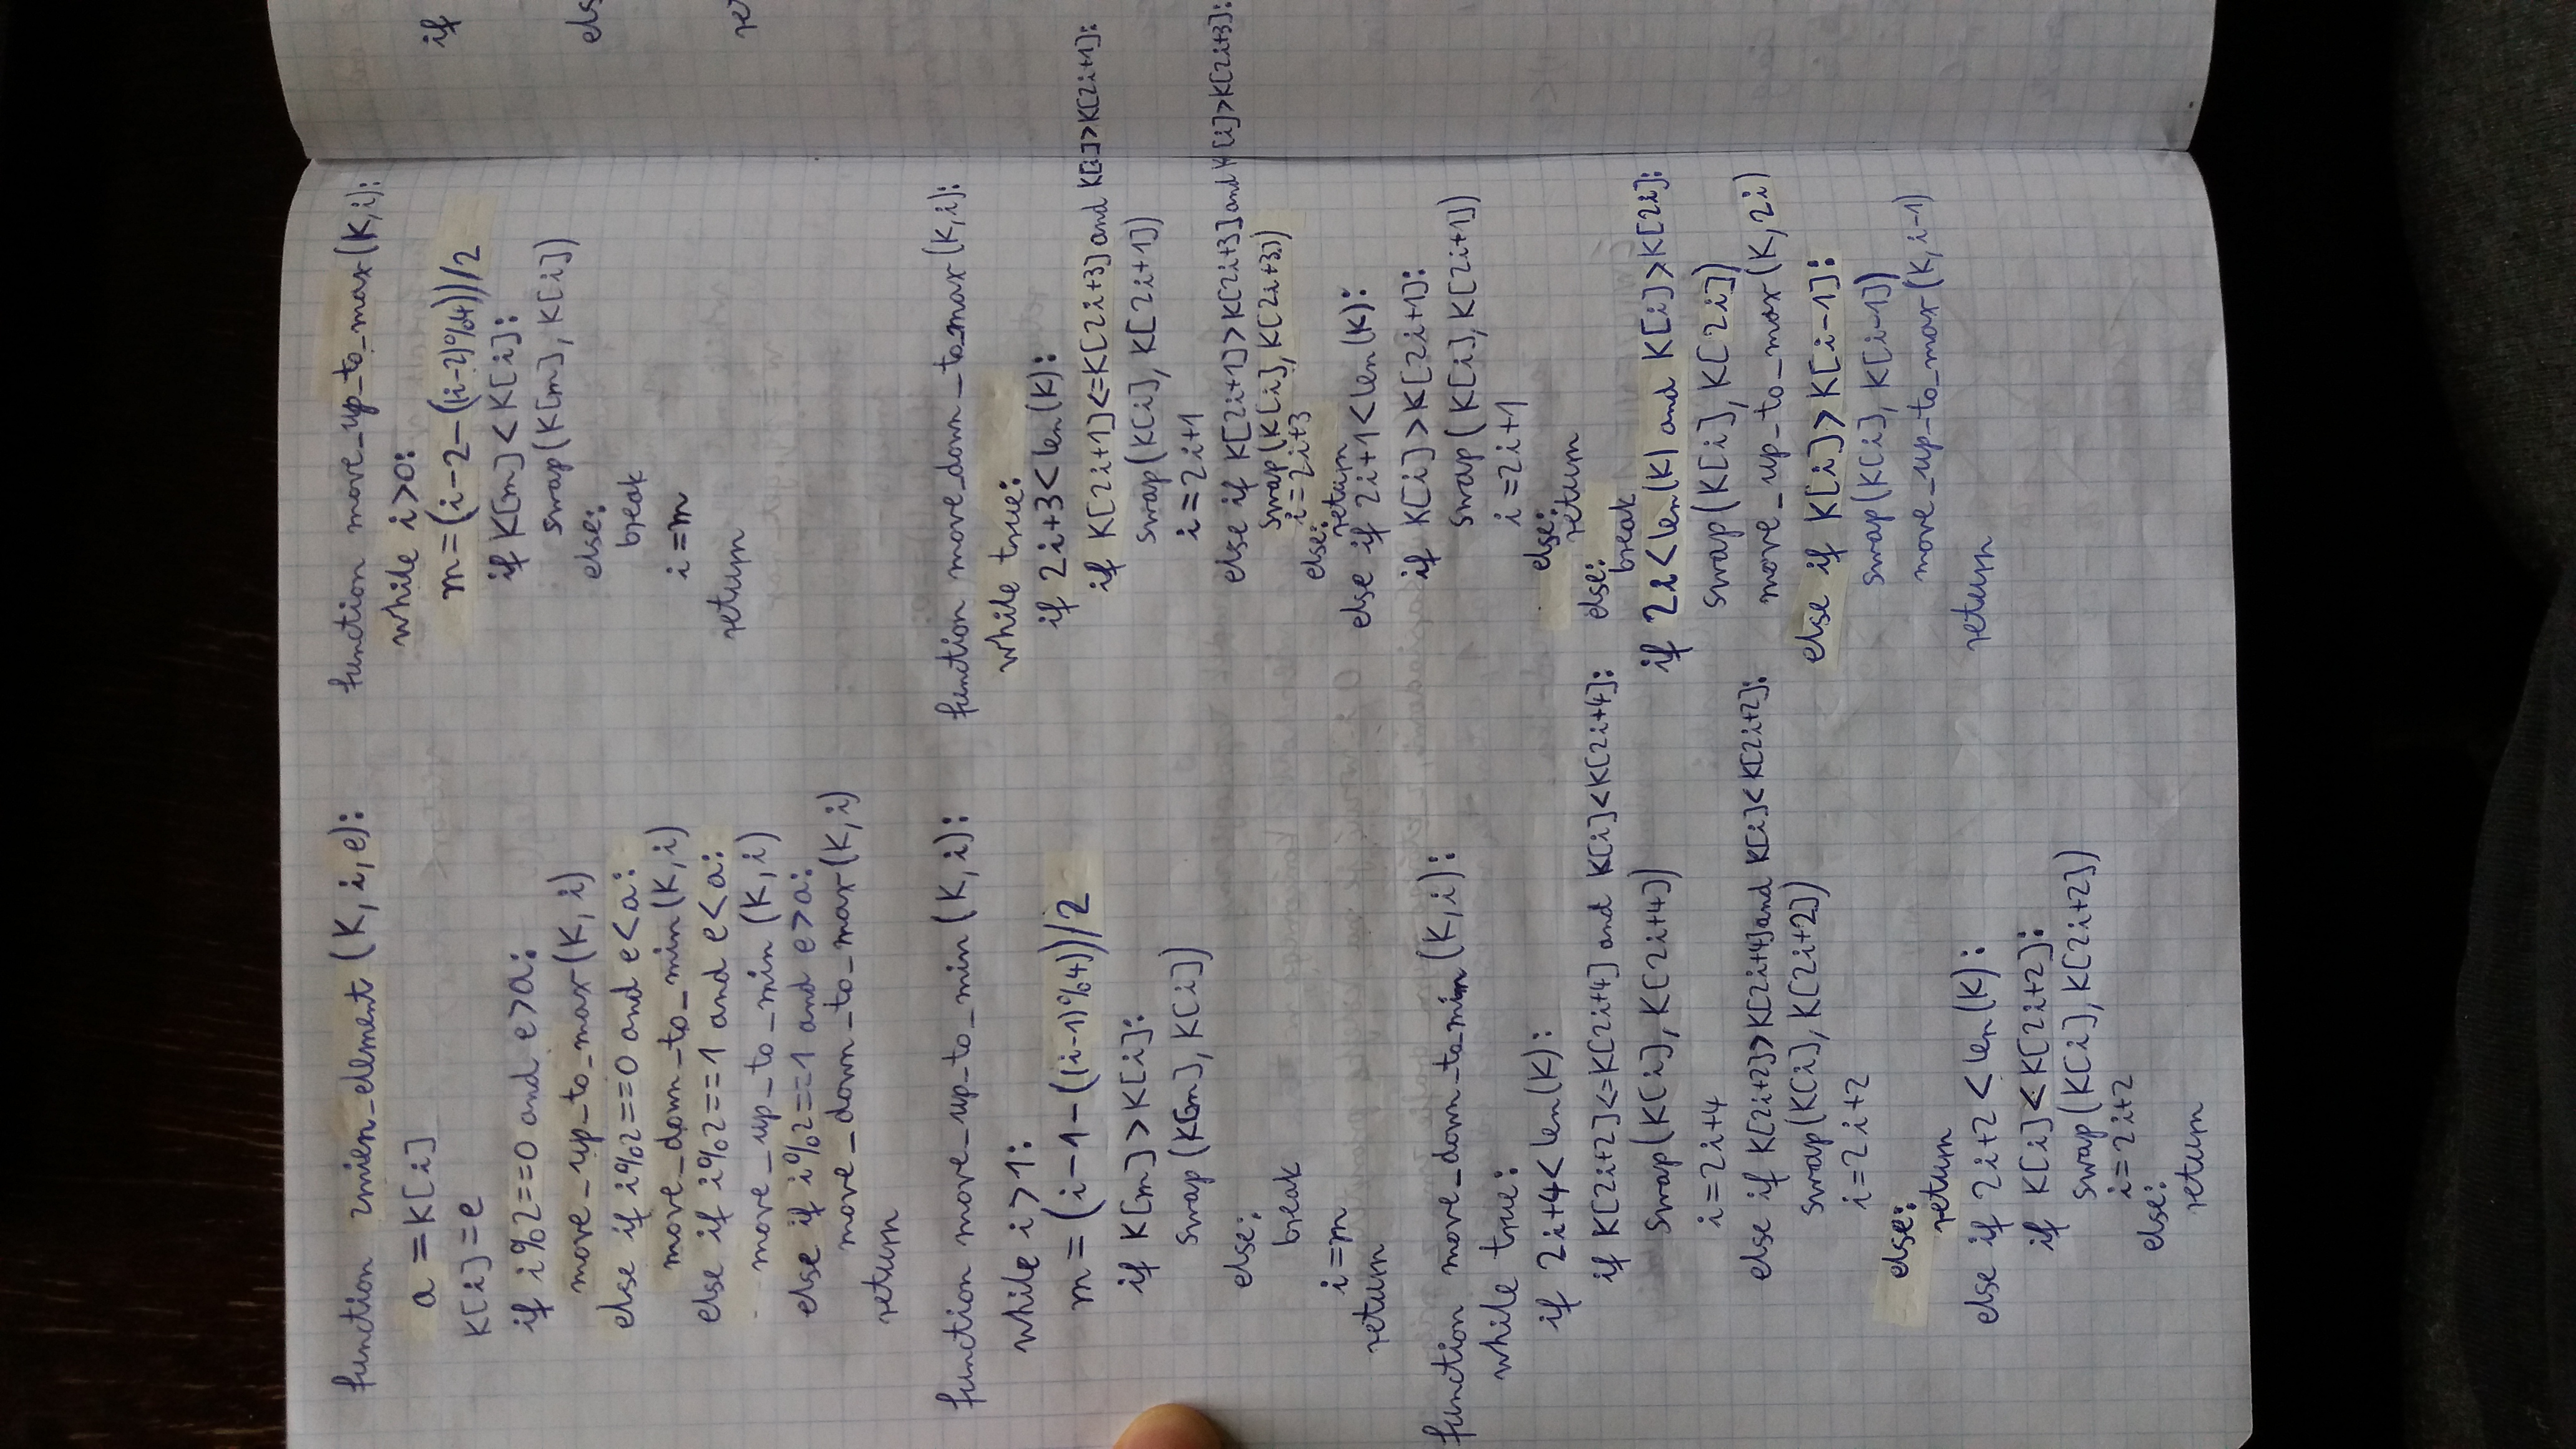 function zmien_element (K, i, e):
a = K[i]
K[i] = e
if i%2==0 and e>a:
move_up_to_max(K, i)
else if i%2==0 and e<a:
move_down_to_min(K, i)
else if i%2==1 and e<a:
move_up_to_min (K, i)
else if i%2==1 and e>a:
move_down_to_max(K, i)
return
function move_up_to_min (K, i):
while i>1:
m = (i-1-((i-1)%4))/2
if K[m] > K[i]:
swap (K[m], K[i])
else:
break
i=m
return
function move_down_to_min (K, i):
while true:
if 2i+4<len(K):
if K[2i+2]<=K[2i+4] and K[i]<K[2i+4]:
swap(K[i], K[2i+4])
i=2i+4
else if K[2i+2]>K[2i+4] and K[i]<K[2i+2]:
swap(K[i], K[2i+2])
i=2i+2
else:
return
else if 2i+2<len(K):
if K[i]<K[2i+2]:
swap(K[i], K[2i+2])
i=2i+2
else:
return
function move_up_to_max(K,i):
while i>0:
m=(i-2-((i-2)%4))/2
if K[m]<K[i]:
swap(K[m], K[i])
else:
break
i=m
return
function move_down_to_max(K,i):
while true:
if 2i+3<len(K):
if K[2i+1]<=K[2i+3] and K[i]>K[2i+1]:
swap(K[i], K[2i+1])
i=2i+1
else if K[2i+1]>K[2i+3] and K[i]>K[2i+3]:
swap(K[i], K[2i+3])
i=2i+3
else:
return
else if 2i+1<len(K):
if K[i]>K[2i+1]:
swap( K[i], K[2i+1])
i=2i+1
else:
return
else:
break
if 2i<len(K) and K[i]>K[2i]:
swap(K[i], K[2i])
move_up_to_max(K, 2i)
else if K[i]>K[i-1]:
swap(K[i], K[i-1])
move_up_to_max(K, i-1)
return
if